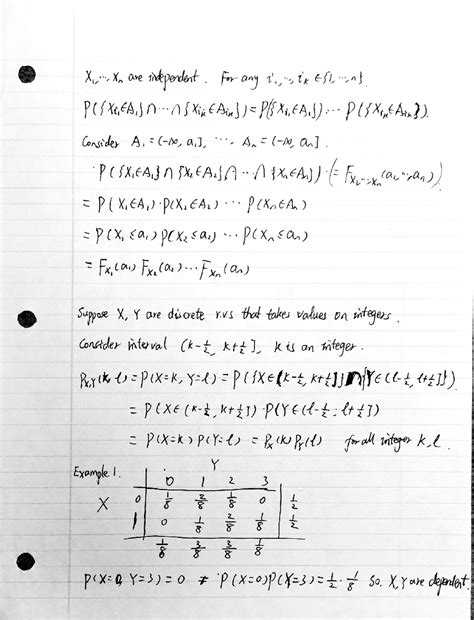 X₁, ..., Xₙ are independent. For any i₁, ..., iₖ ∈ {1, ..., n}.
P({Xi₁∈A₁} ∩ ... ∩ {Xiₖ∈Aiₖ}) = P({Xi₁∈Ai₁}) ... P({Xiₖ∈Aiₖ}).
Consider A₁ = (-∞, a₁], ... Aₙ = (-∞, aₙ].
P({X₁∈A₁} ∩ {X₂∈A₂} ∩ ... ∩ {Xₙ∈Aₙ}) (= F_{X₁,...,Xₙ}(a₁, ..., aₙ))
= P(X₁∈A₁) · P(X₂∈A₂) ... P(Xₙ∈Aₙ)
= P(X₁ ≤ a₁) P(X₂ ≤ a₂) ... P(Xₙ ≤ aₙ)
= F_{X₁}(a₁) F_{X₂}(a₂) ... F_{Xₙ}(aₙ)
Suppose X, Y are discrete r.v.s that takes values on integers.
Consider interval (k-½, k+½], k is an integer.
P_{X,Y}(k, l) = P(X=k, Y=l) = P({X∈(k-½, k+½]} ∩ {Y∈(l-½, l+½]})
= P(X∈(k-½, k+½]) · P(Y∈(l-½, l+½])
= P(X=k) P(Y=l) = P_X(k) P_Y(l) for all integer k, l.
Example 1.
Y
0 1 2 3
X 0 1/8 2/8 1/8 0 1/2
1 0 1/8 2/8 1/8 1/2
1/8 3/8 3/8 1/8
P(X=0, Y=3) = 0 ≠ P(X=0)P(Y=3) = ½ · 1/8 So. X, Y are dependent.